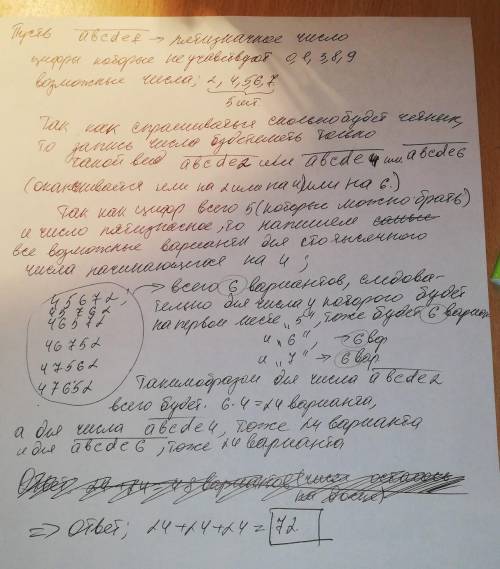 Пусть abcde2 → пятизначное число
цифры которые не участвуют 0, 1, 3, 8, 9
возможные числа; 2, 4, 5, 6, 7
5 шт
Так как спрашиваться сколько будет четных,
то запись числа будет иметь только
такой вид abcde2 или abcde4 или abcde6
(оканчивается или на 2 или на 4 или на 6.)
Так как цифр всего 5 (которые можно брать)
и число пятизначное, то напишем
все возможные варианты для стотысячного
числа начинающегося на 4;
45672;
45762
46572
46752
47562
47652
→ всего 6 вариантов, следова-
тельно для числа у которого будет
на первом месте „5", тоже будет 6 вариан
и „6", → 6 вар
и „7" → 6 вар
Таким образом для числа abcde2
всего будет. 6·4=24 варианта,
а для числа abcde4, тоже 24 варианта
и для abcde6, тоже 24 варианта
=> Ответ; 24+24+24= 72